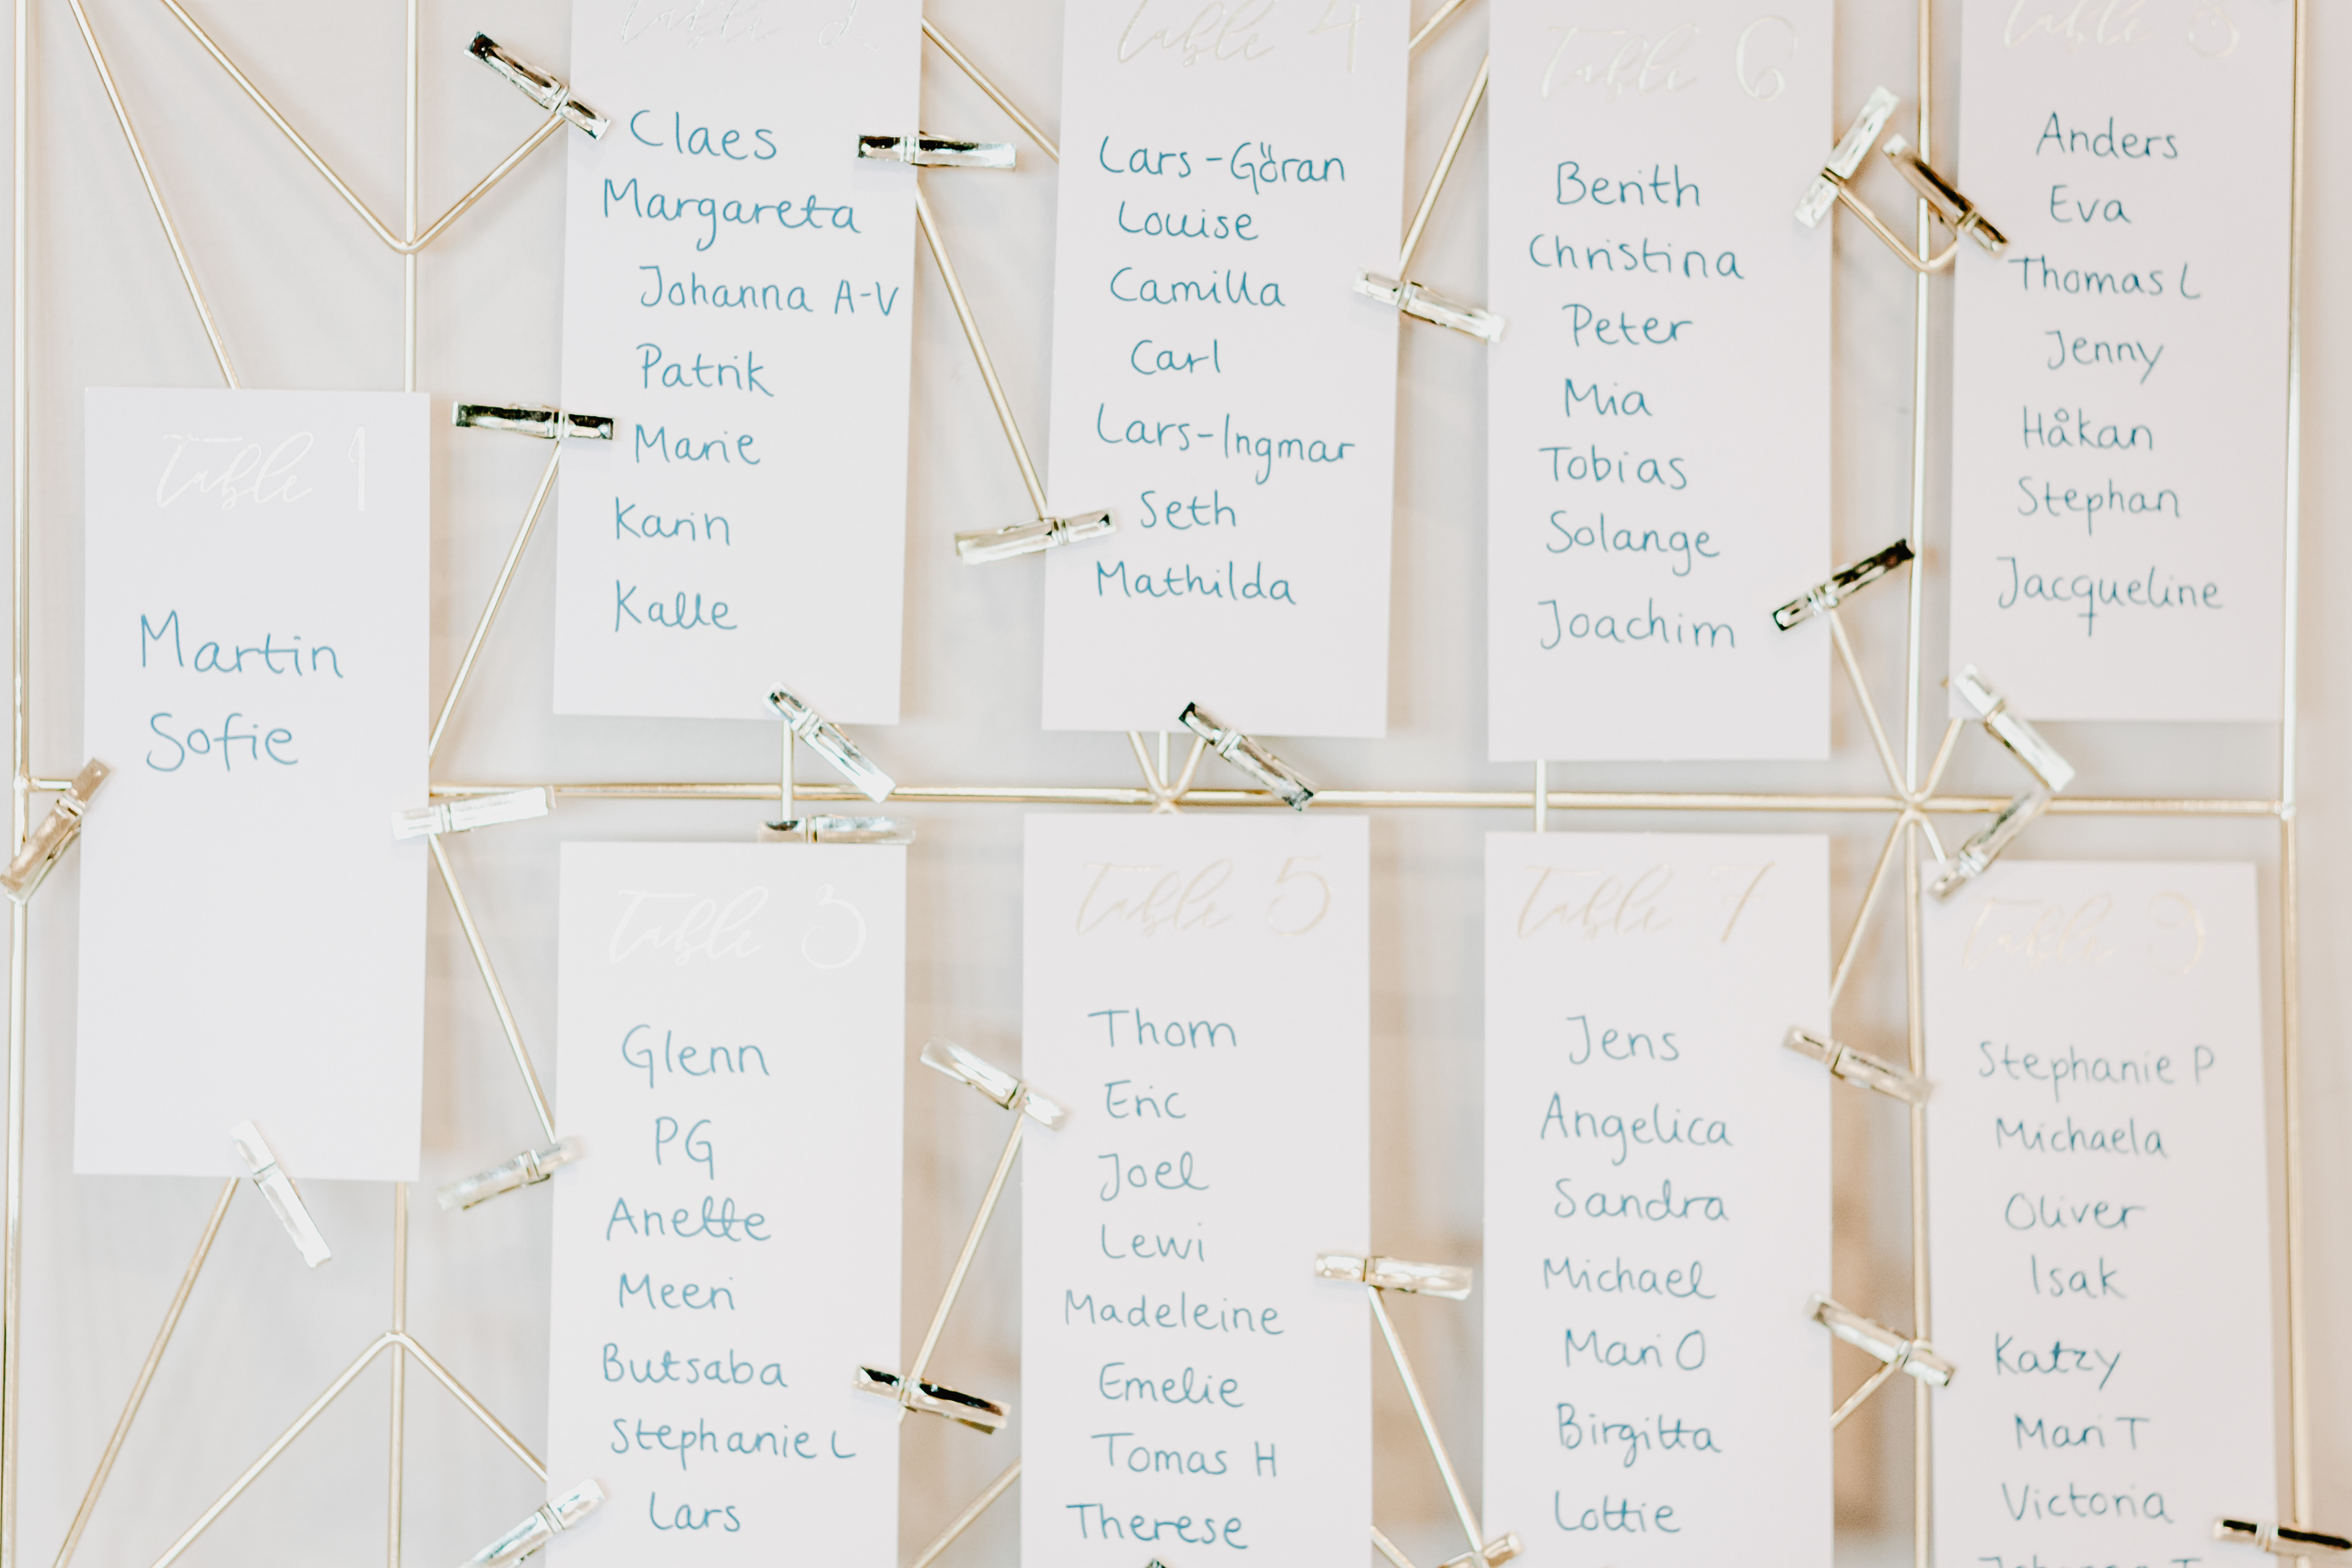 Table 1
Martin
Sofie
Table 2
Claes
Margareta
Johanna A-V
Patrik
Marie
Karin
Kalle
Table 3
Glenn
PG
Anette
Meeri
Butsaba
Stephanie L
Lars
Table 4
Lars-Göran
Louise
Camilla
Carl
Lars-Ingmar
Seth
Mathilda
Table 5
Thom
Eric
Joel
Lewi
Madeleine
Emelie
Tomas H
Therese
Table 6
Berith
Christina
Peter
Mia
Tobias
Solange
Joachim
Table 7
Jens
Angelica
Sandra
Michael
Mari O
Birgitta
Lottie
Table 8
Anders
Eva
Thomas L
Jenny
Håkan
Stephan
Jacqueline
Table 9
Stephanie P
Michaela
Oliver
Isak
Katzy
Mari T
Victoria